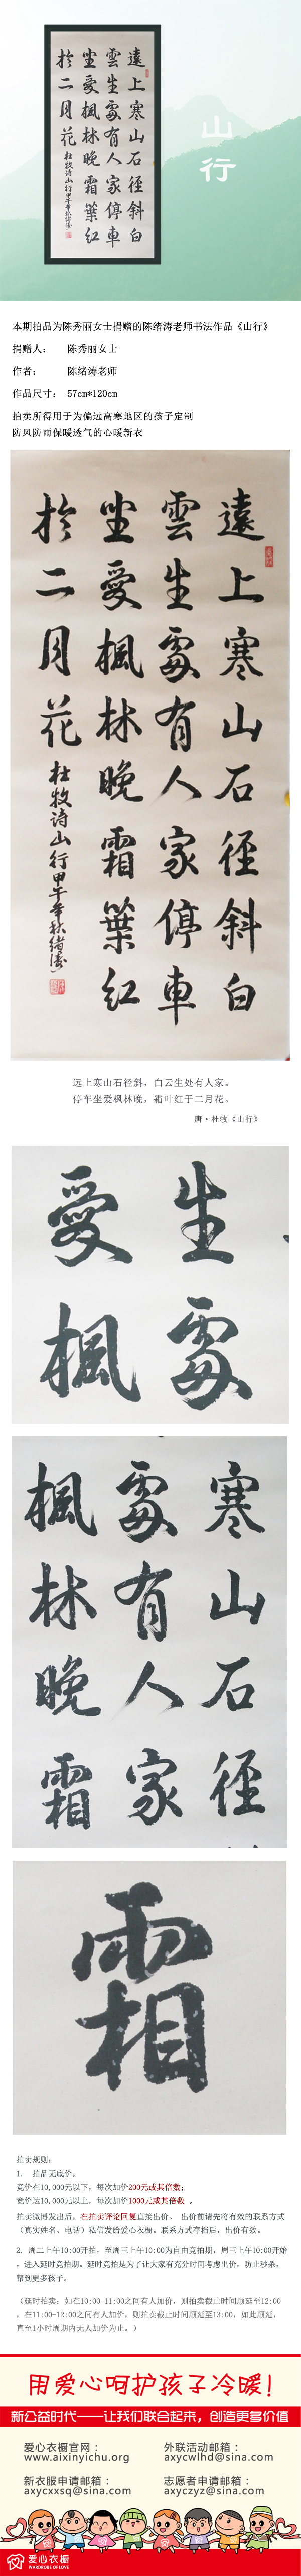 遠上寒山石径斜白
雲生處有人家停車
坐愛楓林晚霜葉红
於二月花
杜牧诗山行甲午年秋绪涛
山行
本期拍品为陈秀丽女士捐赠的陈绪涛老师书法作品《山行》
捐赠人： 陈秀丽女士
作者： 陈绪涛老师
作品尺寸： 57cm*120cm
拍卖所得用于为偏远高寒地区的孩子定制
防风防雨保暖透气的心暖新衣
遠上寒山石径斜白
雲生處有人家停車
坐愛楓林晚霜葉红
於二月花
杜牧诗山行甲午年秋绪涛
远上寒山石径斜，白云生处有人家。
停车坐爱枫林晚，霜叶红于二月花。
唐·杜牧《山行》
生處
愛楓
寒山石径
處有人家
楓林晚霜
霜
拍卖规则：
1. 拍品无底价，
竞价在10,000元以下，每次加价200元或其倍数；
竞价达10,000元以上，每次加价1000元或其倍数 。
拍卖微博发出后，在拍卖评论回复直接出价。 出价前请先将有效的联系方式
（真实姓名、电话）私信发给爱心衣橱。联系方式存档后，出价有效。
2. 周二上午10:00开拍，至周三上午10:00为自由竞拍期，周三上午10:00开始
，进入延时竞拍期，延时竞拍是为了让大家有充分时间考虑出价，防止秒杀，
帮到更多孩子。
（延时拍卖：如在10:00-11:00之间有人加价，则拍卖截止时间顺延至12:00
，在11:00-12:00之间有人加价，则拍卖截止时间顺延至13:00，如此顺延，
直至1小时周期内无人加价为止。）
用爱心呵护孩子冷暖!
新公益时代——让我们联合起来，创造更多价值
爱心衣橱官网：
www.aixinyichu.org
外联活动邮箱：
axycwlhd@sina.com
新衣服申请邮箱：
axycxxsq@sina.com
志愿者申请邮箱：
axyczyz@sina.com
爱心衣橱
WARDROBE OF LOVE